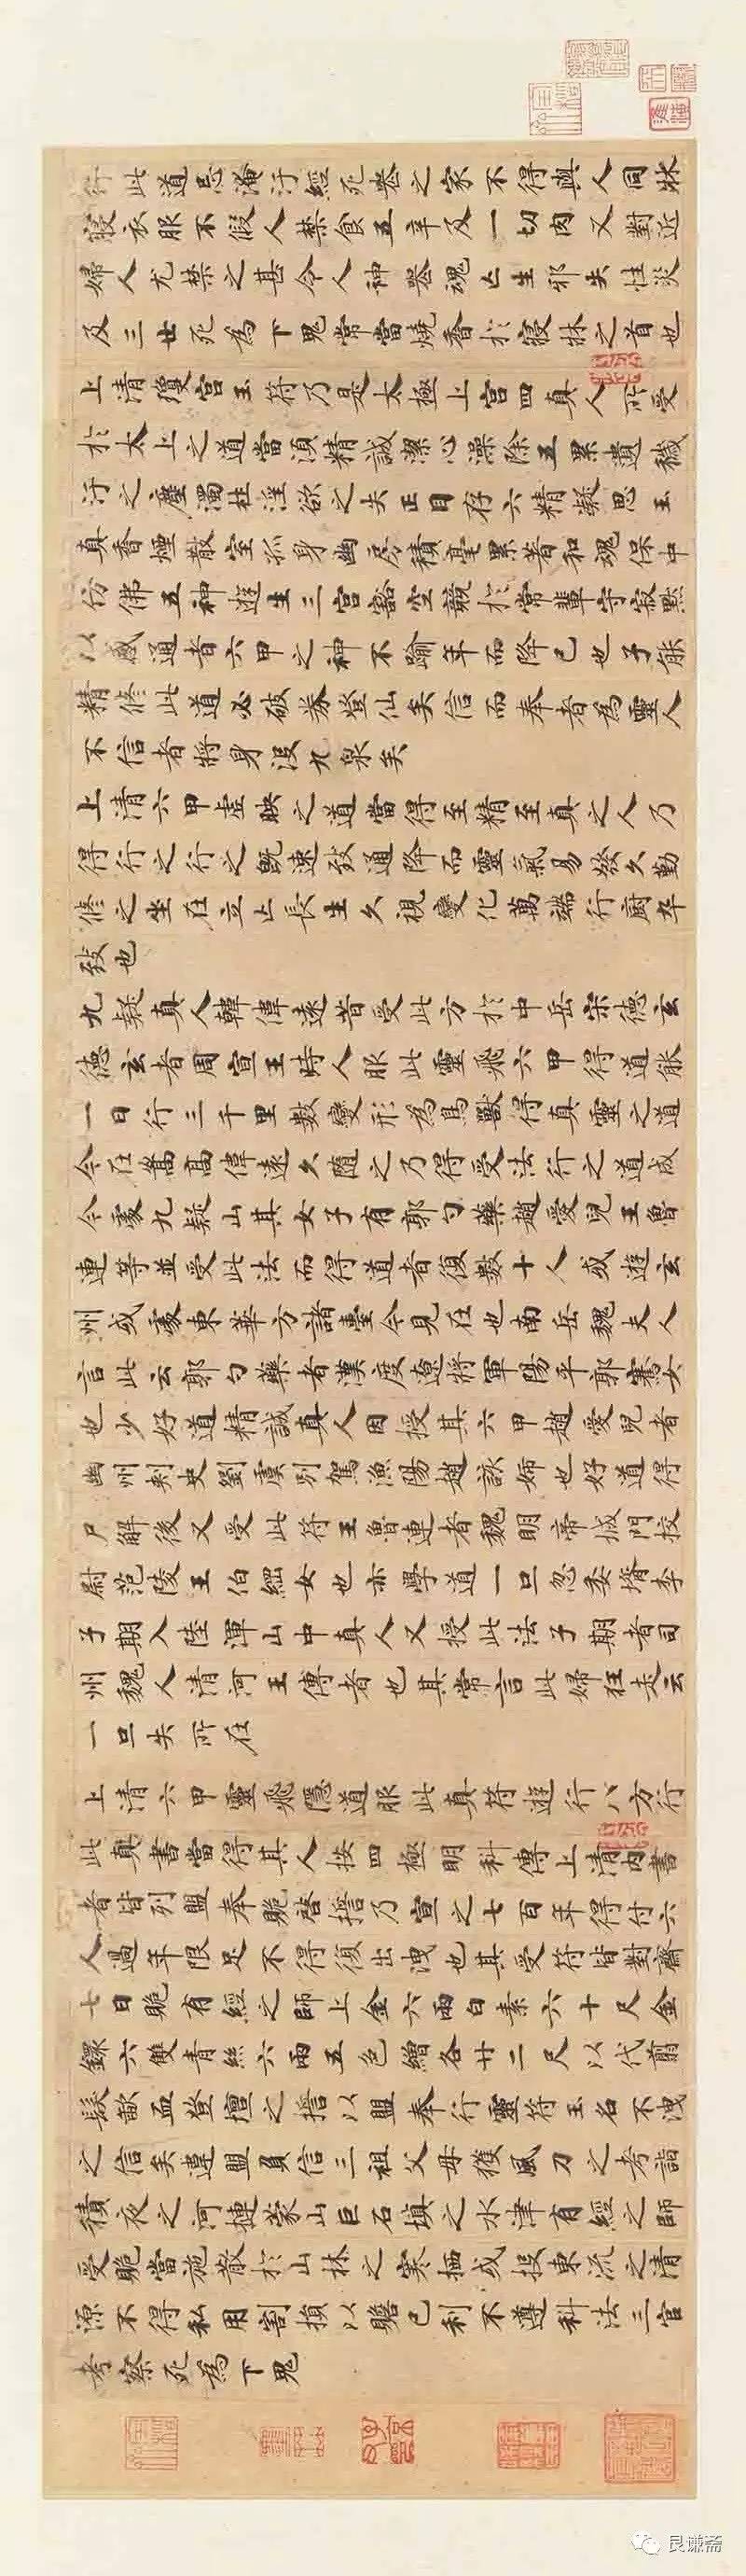 行此道忌淹汙經死喪之家不得與人同牀
寢衣服不假人禁食五辛及一切肉又對近
婦人尤禁之甚令人神喪魂亡生邪失性災
及三世死為下鬼常當燒香於寢牀之首也
上清瓊宮玉符乃是太極上宮四真人所受
於太上之道當須精誠潔心澡除五累遺穢
汙之塵濁杜淫欲之失正目存六精凝思玉
真香煙散室孤身幽房積毫累著和魂保中
仿佛五神遊生三宮豁空競於常輩守寂默
以感通者六甲之神不踰年而降己也子能
精修此道必破券登仙矣信而奉者為靈人
不信者將身沒九泉矣
上清六甲虛映之道當得至精至真之人乃
得行之行之既速致通降而靈氣易發久勤
修之坐在立亡長生久視變化萬端行廚卒
致也
九疑真人韓偉遠昔受此方於中岳宋德玄
德玄者周宣王時人服此靈飛六甲得道能
一日行三千里數變形為鳥獸得真靈之道
今在嵩高偉遠久隨之乃得受法行之道成
今處九疑山其女子有郭勺藥趙愛兒王魯
連等並受此法而得道者復數十人或遊玄
州或處東華方諸臺今見在也南岳魏夫人
言此云郭勺藥者漢度遼將軍陽平郭騫女
也少好道精誠真人因授其六甲趙愛兒者
幽州刾史劉虞別駕漁陽趙該姊也好道得
尸解後又受此符王魯連者魏明帝城門校
尉范陵王伯綱女也亦學道一旦忽委壻李
子期入陸渾山中真人又授此法子期者司
州魏人清河王傅者也其常言此婦狂走云
一旦失所在
上清六甲靈飛隱道服此真符遊行八方行
此真書當得其人按四極明科傳上清內書
者皆列盟奉跪啓誓乃宣之七百年得付六
人過年限足不得復出洩也其受符皆對齋
七日跪有經之師上金六兩白素六十尺金
鐶六雙青絲六兩五色繒各廿二尺以代翦
髮歃血登壇之誓以盟奉行靈符玉名不洩
之信矣違盟負信三祖父母獲風刀之考詣
積夜之河摙蒙山巨石填之水津有經之師
受跪當施散於山林之寒栖或投東流之清
源不得私用割損以贍己利不遵科法三官
考察死為下鬼
艮谦斋